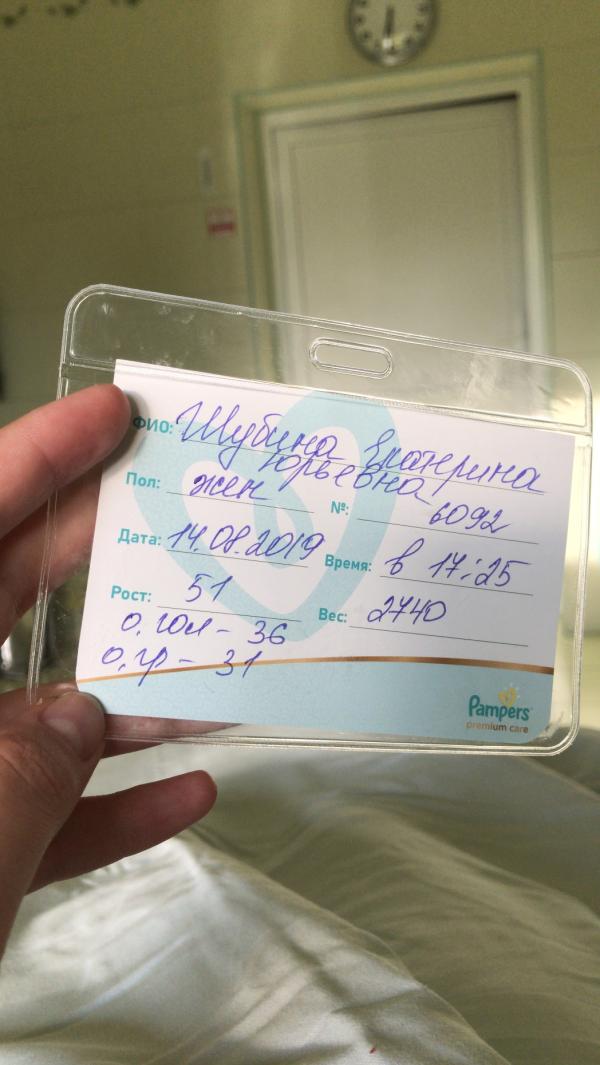 ФИО: Шубина Екатерина
Юрьевна
Пол: жен №: 6092
Дата: 14.08.2019 Время: в 17:25
Рост: 51 Вес: 2740
О.гол - 36
О.гр - 31
Pampers
premium care